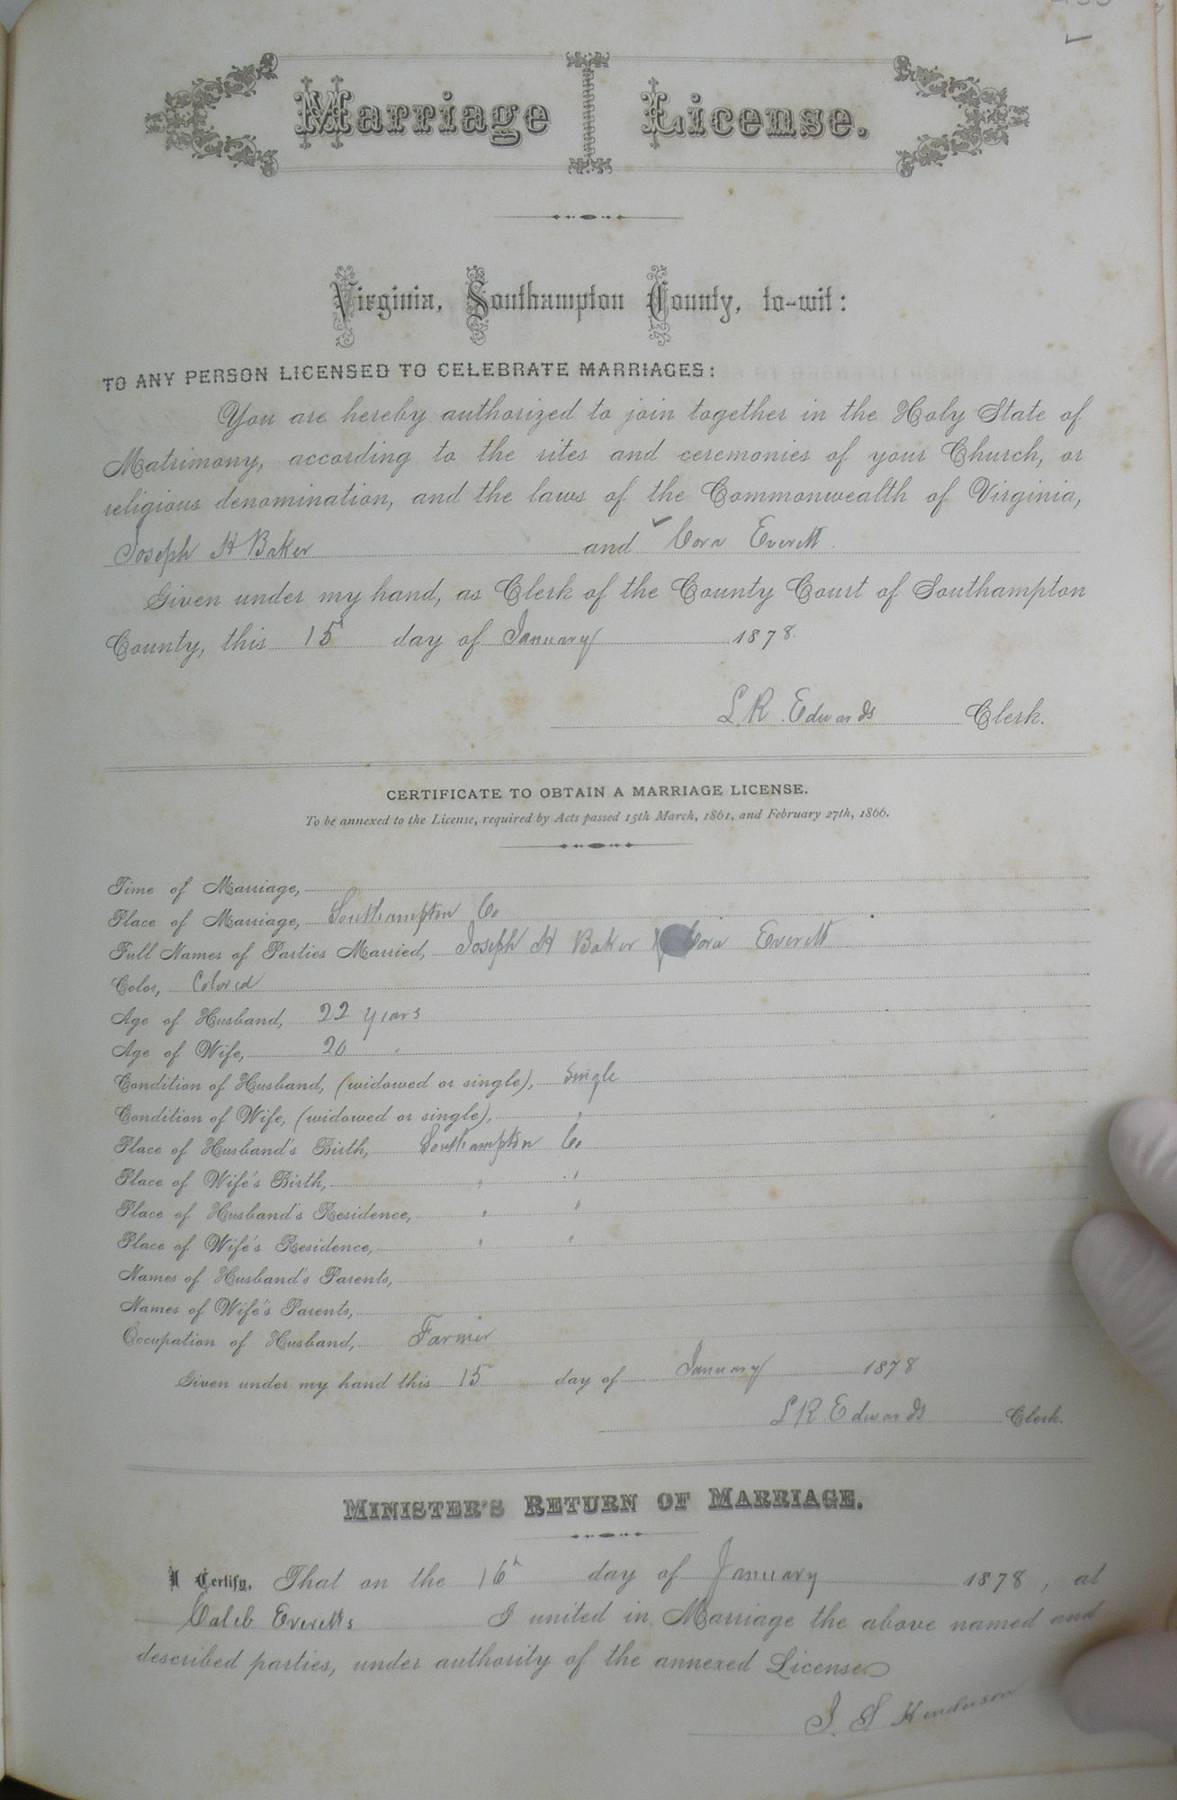 Marriage License.
Virginia, Southampton County, to-wit:
TO ANY PERSON LICENSED TO CELEBRATE MARRIAGES:
You are hereby authorized to join together in the Holy State of
Matrimony, according to the rites and ceremonies of your Church, or
religious denomination, and the laws of the Commonwealth of Virginia,
Joseph H Baker and Cora Everett
Given under my hand, as Clerk of the County Court of Southampton
County, this 15 day of January 1878.
L. R. Edwards Clerk.
CERTIFICATE TO OBTAIN A MARRIAGE LICENSE.
To be annexed to the License, required by Acts passed 15th March, 1861, and February 27th, 1866.
Time of Marriage,
Place of Marriage, Southampton Co
Full Names of Parties Married, Joseph H Baker & Cora Everett
Color, Colored
Age of Husband, 22 years
Age of Wife, 20 "
Condition of Husband, (widowed or single), Single
Condition of Wife, (widowed or single), "
Place of Husband's Birth, Southampton Co
Place of Wife's Birth, " "
Place of Husband's Residence, " "
Place of Wife's Residence, " "
Names of Husband's Parents,
Names of Wife's Parents,
Occupation of Husband, Farmer
Given under my hand this 15 day of January 1878
L R Edwards Clerk.
MINISTER'S RETURN OF MARRIAGE.
I Certify, That on the 16 day of January 1878, at
Caleb Everetts I united in Marriage the above named and
described parties, under authority of the annexed License
Henderson